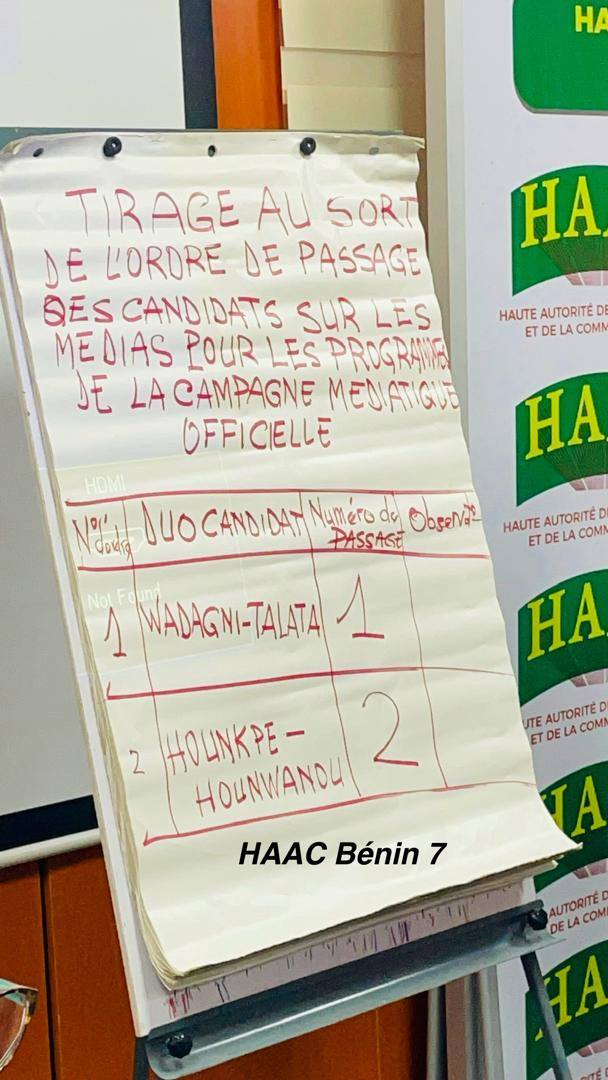 TIRAGE AU SORT
DE L'ORDRE DE PASSAGE
DES CANDIDATS SUR LES
MEDIAS POUR LES PROGRAMMES
DE LA CAMPAGNE MEDIATIQUE
OFFICIELLE
HDMI
Not Found
N° d'ordre DUO CANDIDAT Numéro de PASSAGE Observat°
1 WADAGNI-TALATA 1
2 HOUNKPE- 2
HOUNWANOU
HAAC Bénin 7
HA
HAA
HAUTE AUTORITÉ DE
ET DE LA COMM
HAA
HAUTE AUTORITÉ D
ET DE LA COMM
HA
UTE AUTORITÉ D
ET DE LA COM
AUTORITÉ D
DE LA COM
HA